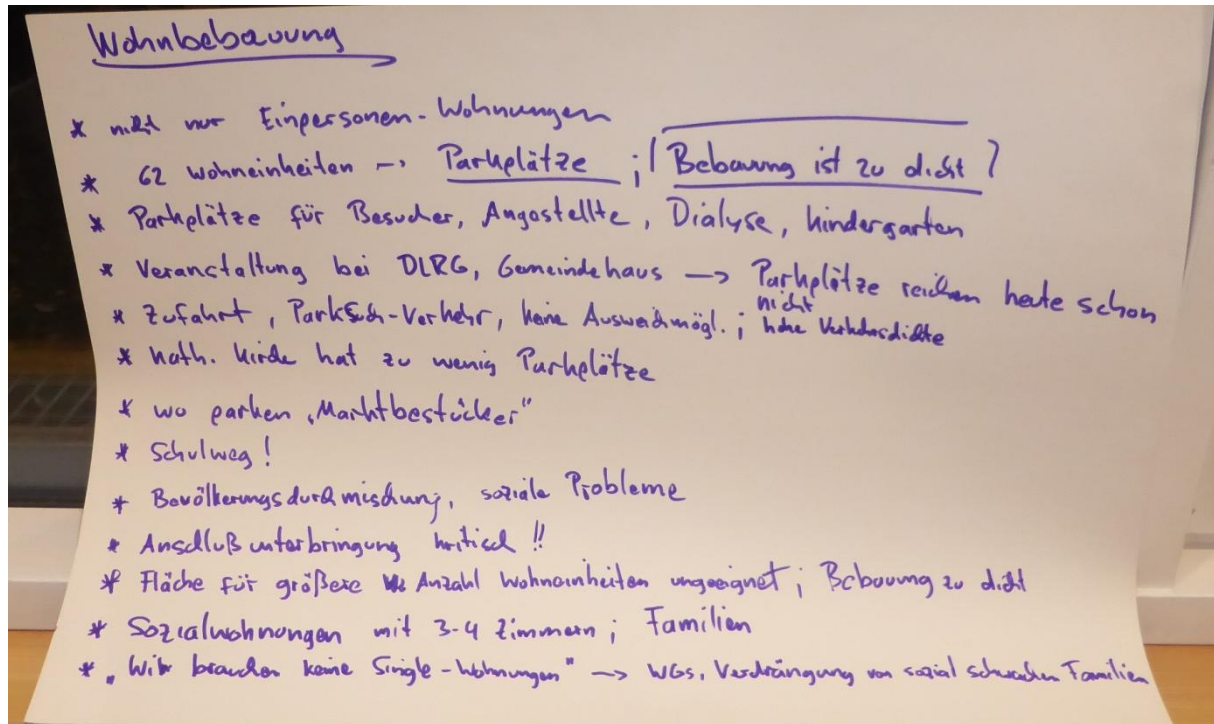 Wohnbebauung
* nicht nur Einpersonen-Wohnungen
* 62 Wohneinheiten → Parkplätze ; | Bebauung ist zu dicht |
* Parkplätze für Besucher, Angestellte, Dialyse, Kindergarten
* Veranstaltung bei DLRG, Gemeindehaus → Parkplätze reichen heute schon
nicht
* Zufahrt, Parksuch-Verkehr, keine Ausweichmögl. ; hohe Verkehrsdichte
* kath. Kirche hat zu wenig Parkplätze
* wo parken „Marktbestücker"
* Schulweg!
* Bevölkerungsdurchmischung, soziale Probleme
* Anschlußunterbringung kritisch !!
* Fläche für größere Anzahl Wohneinheiten ungeeignet ; Bebauung zu dicht
* Sozialwohnungen mit 3-4 Zimmern ; Familien
* „Wir brauchen keine Single-Wohnungen" → WGs, Verdrängung von sozial schwachen Familien